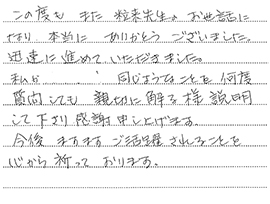 この度も また 粒来先生の お世話に
なり、本当に ありがとう ございました。
迅速に 進めて いただきました。
私が 同じようなことを 何度
質問しても 親切に 解る 様 説明
して 下さり 感謝 申し上げます。
今後 ますます ご活躍 されることを
心から 祈って おります。